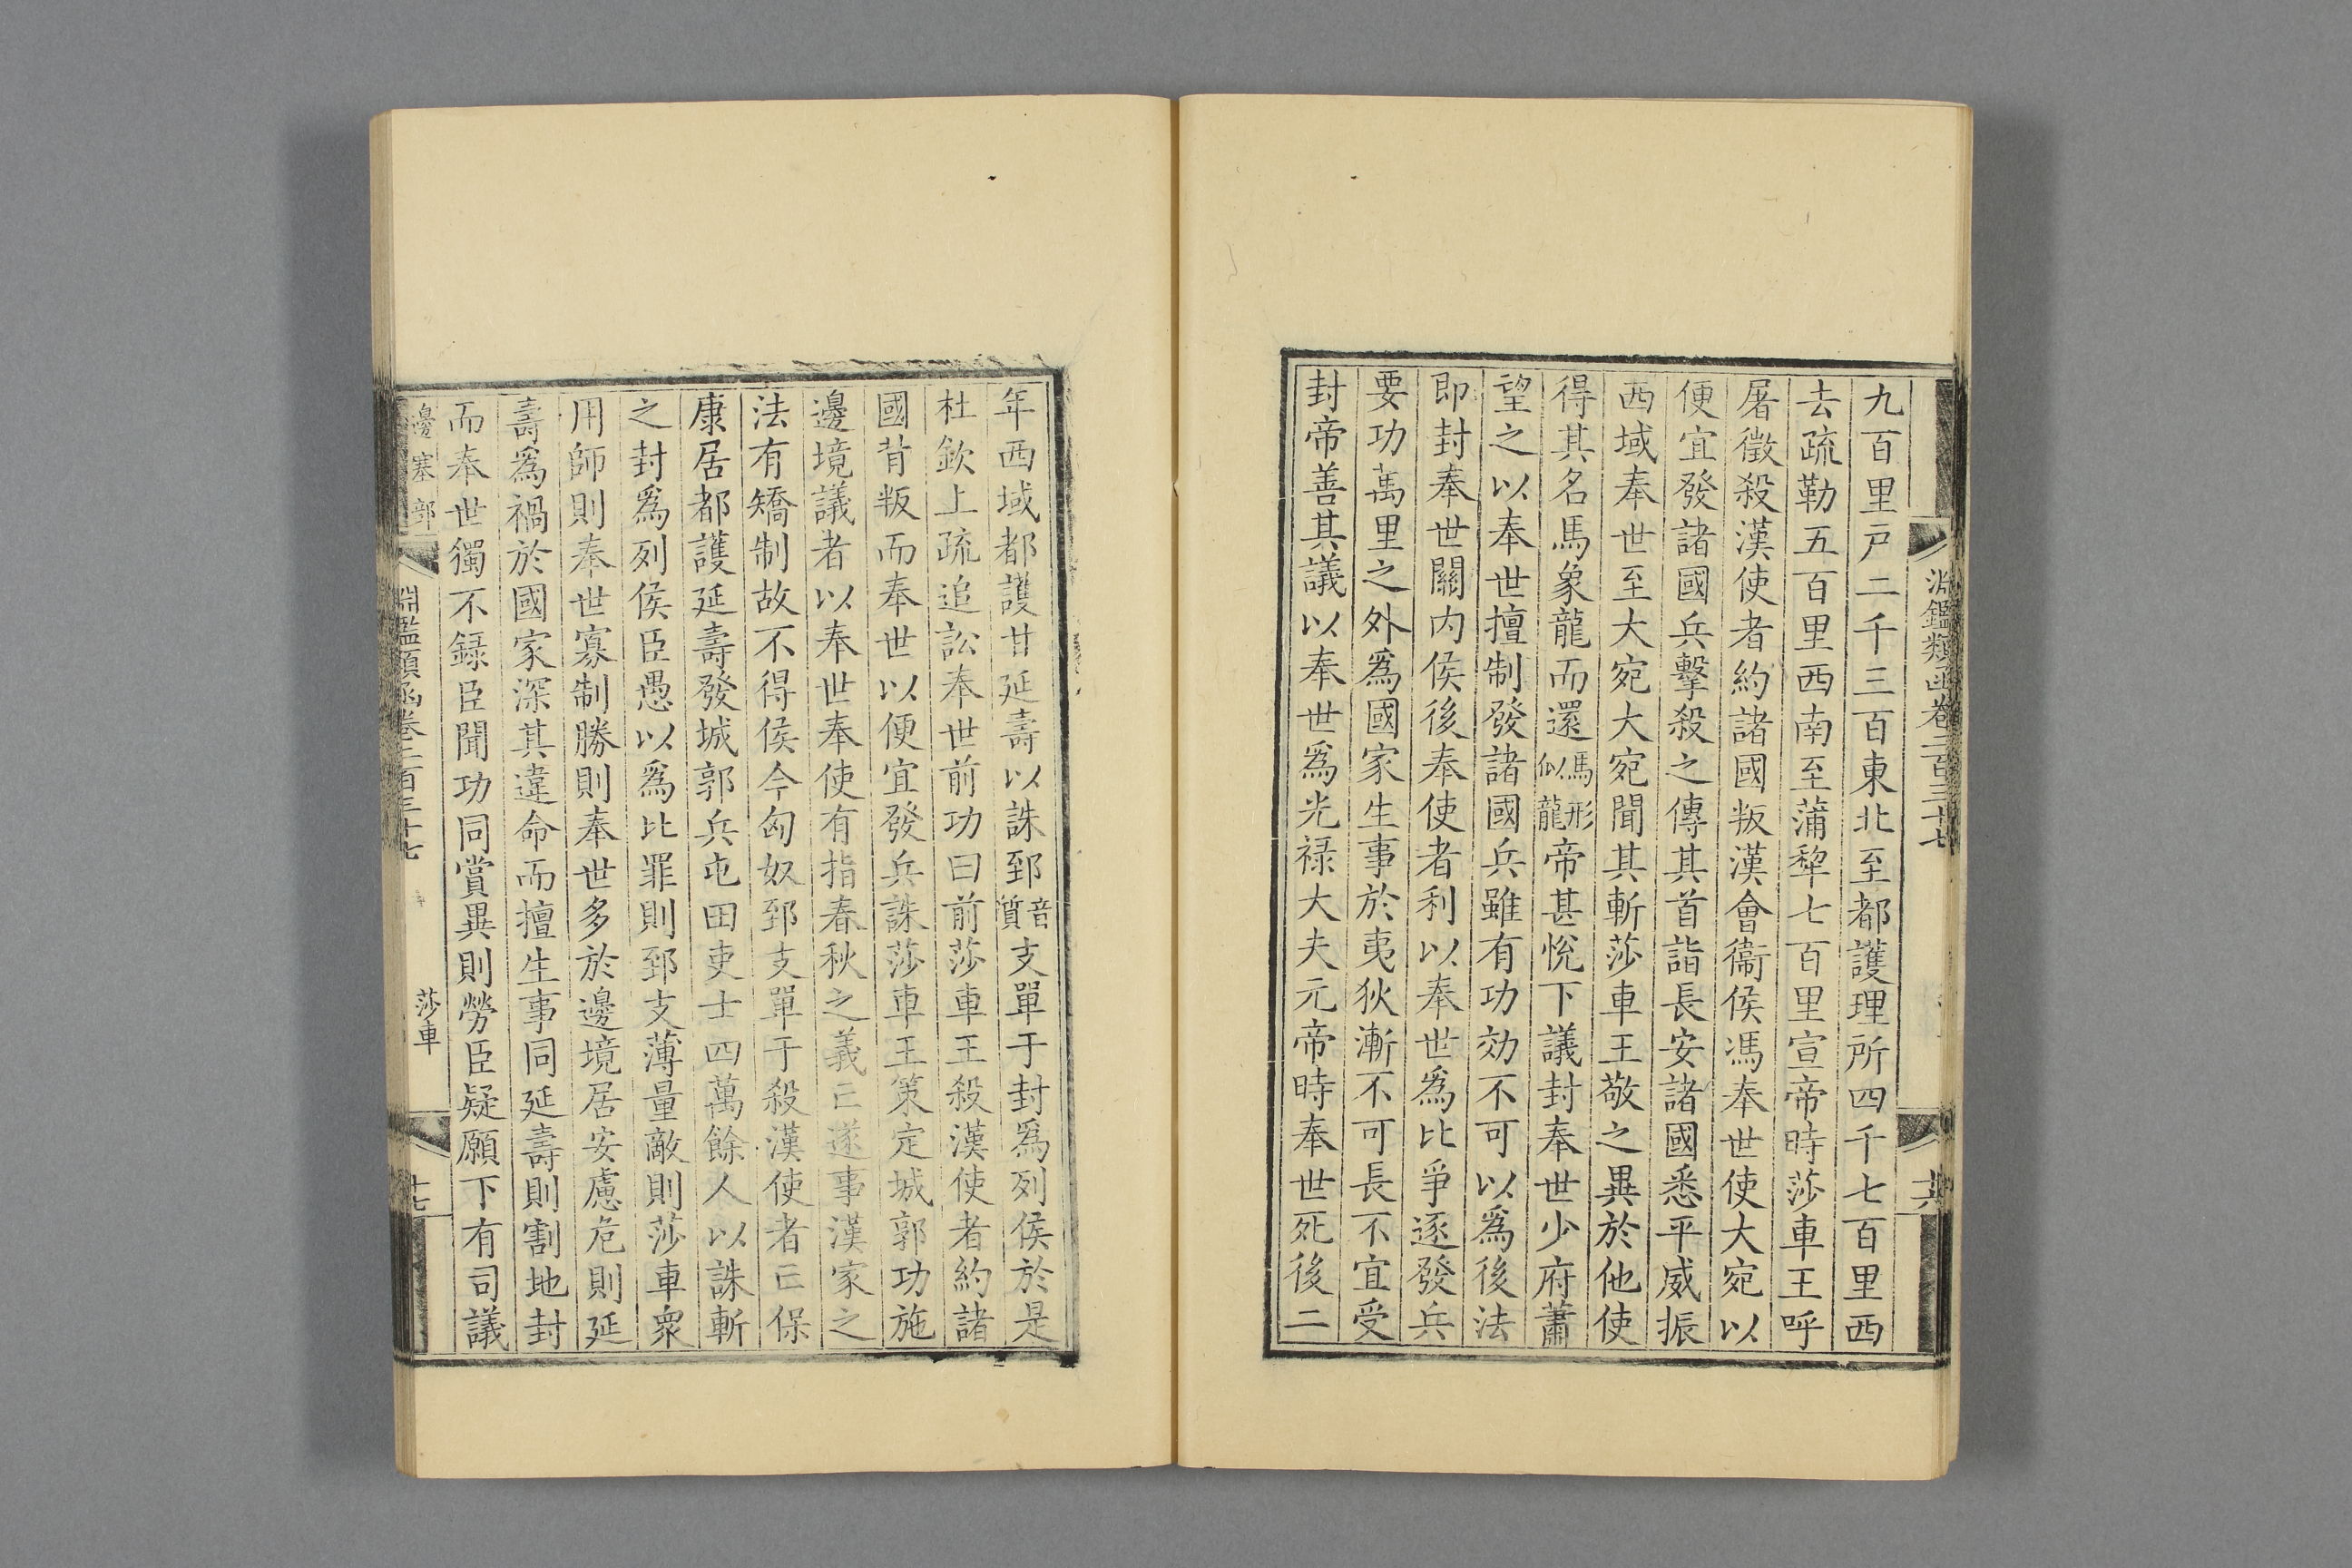 淵鑑類函卷二百三十七
十六
九百里戸二千三百東北至都護理所四千七百里西
去疏勒五百里西南至蒲犂七百里宣帝時莎車王呼
屠徵殺漢使者約諸國叛漢會衞侯馮奉世使大宛以
便宜發諸國兵擊殺之傳其首詣長安諸國悉平威振
西域奉世至大宛大宛聞其斬莎車王敬之異於他使
得其名馬象龍而還馬形似龍帝甚悅下議封奉世少府蕭
望之以奉世擅制發諸國兵雖有功効不可以爲後法
即封奉世關内侯後奉使者利以奉世爲比爭逐發兵
要功萬里之外爲國家生事於夷狄漸不可長不宜受
封帝善其議以奉世爲光禄大夫元帝時奉世死後二
年西域都護甘延壽以誅郅音質支單于封爲列侯於是
杜欽上疏追訟奉世前功曰前莎車王殺漢使者約諸
國背叛而奉世以便宜發兵誅莎車王策定城郭功施
邊境議者以奉世奉使有指春秋之義亡遂事漢家之
法有矯制故不得侯今匈奴郅支單于殺漢使者亡保
康居都護延壽發城郭兵屯田吏士四萬餘人以誅斬
之封爲列侯臣愚以爲比罪則郅支薄量敵則莎車衆
用師則奉世寡制勝則奉世多於邊境居安慮危則延
壽爲禍於國家深其違命而擅生事同延壽則割地封
而奉世獨不録臣聞功同賞異則勞臣疑願下有司議
邊塞部
淵鑑類函卷二百三十七
莎車
十七